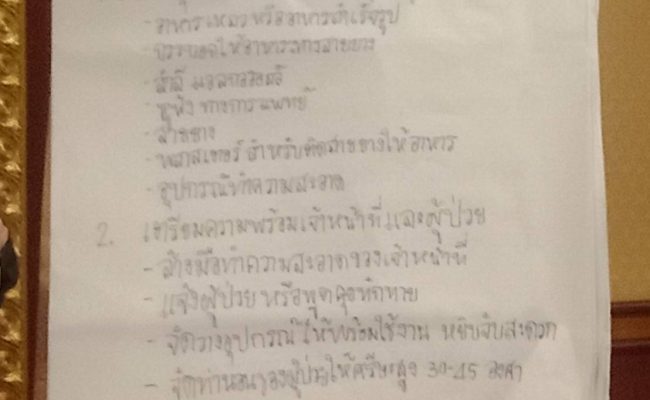 - อาหารเหลวหรืออาหารสำเร็จรูป
- กระบอกให้อาหารทางสายยาง
- สำลี แอลกอฮอล์
- หูฟัง ทางการแพทย์
- สายยาง
- พลาสเตอร์ สำหรับติดสายยางให้อาหาร
- อุปกรณ์ทำความสะอาด
2. เตรียมความพร้อมเจ้าหน้าที่และผู้ป่วย
- ล้างมือทำความสะอาดของเจ้าหน้าที่
- แจ้งผู้ป่วย หรือพูดคุยทักทาย
- จัดวางอุปกรณ์ให้พร้อมใช้งาน หยิบจับสะดวก
- จัดท่านอนของผู้ป่วยให้ศรีษะสูง 30-45 องศา